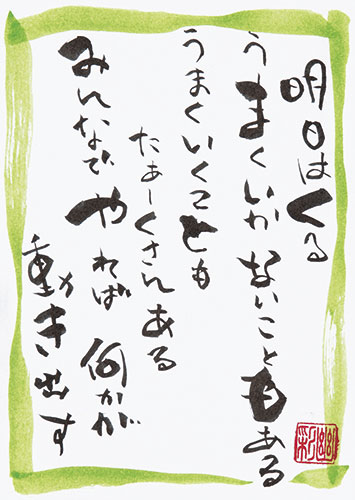 明日はくる
うまくいかないこともある
うまくいくことも
たぁーくさんある
みんなで やれば 何かが
動き出す